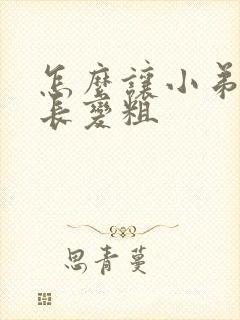 怎麼讓小弟
長變粗
思青蔓